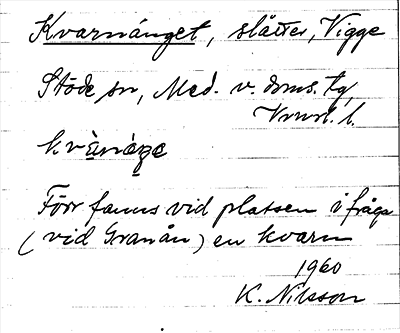 Kvarnänget, slåtter, Vigge
Stöde sn, Med. v. doms. tg,
Vrnrl. l.
kvà̱nǽŋe
Förr fanns vid platsen i fråga
(vid Granån) en kvarn
1960
K. Nilsson